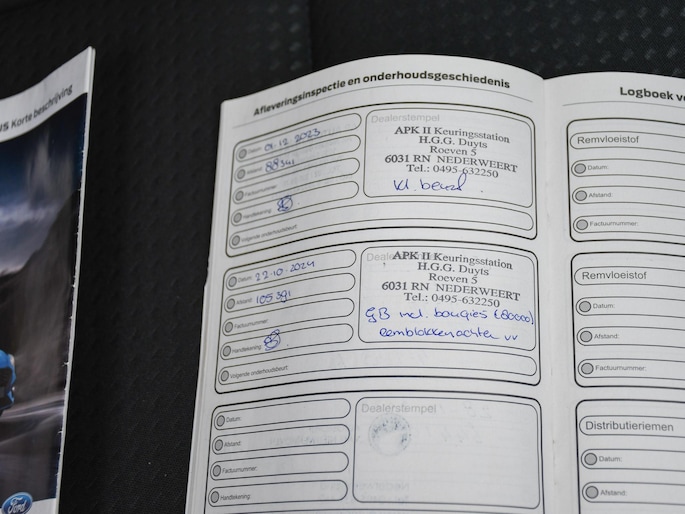 15 Korte beschrijving
Ford
Afleveringsinspectie en onderhoudsgeschiedenis
Datum: 01-12 2023
Afstand:
Factuurnummer:
Handtekening:
Volgende onderhoudsbeurt:
Dealerstempel
APK II Keuringsstation
H.G.G. Duyts
Roeven 5
6031 RN NEDERWEERT
Tel.: 0495-632250
kl. beurt.
Datum: 22-10-2024
Afstand: 105391
Factuurnummer:
Handtekening:
Volgende onderhoudsbeurt:
APK II Keuringsstation
H.G.G. Duyts
Roeven 5
6031 RN NEDERWEERT
Tel.: 0495-632250
GB incl. bougies (80000)
remblokken achter vv
Datum:
Afstand:
Factuurnummer:
Handtekening:
Dealerstempel
Logboek
Remvloeistof
Datum:
Afstand:
Factuurnummer:
Remvloeistof
Datum:
Afstand:
Factuurnummer:
Distributieriemen
Datum:
Afstand: